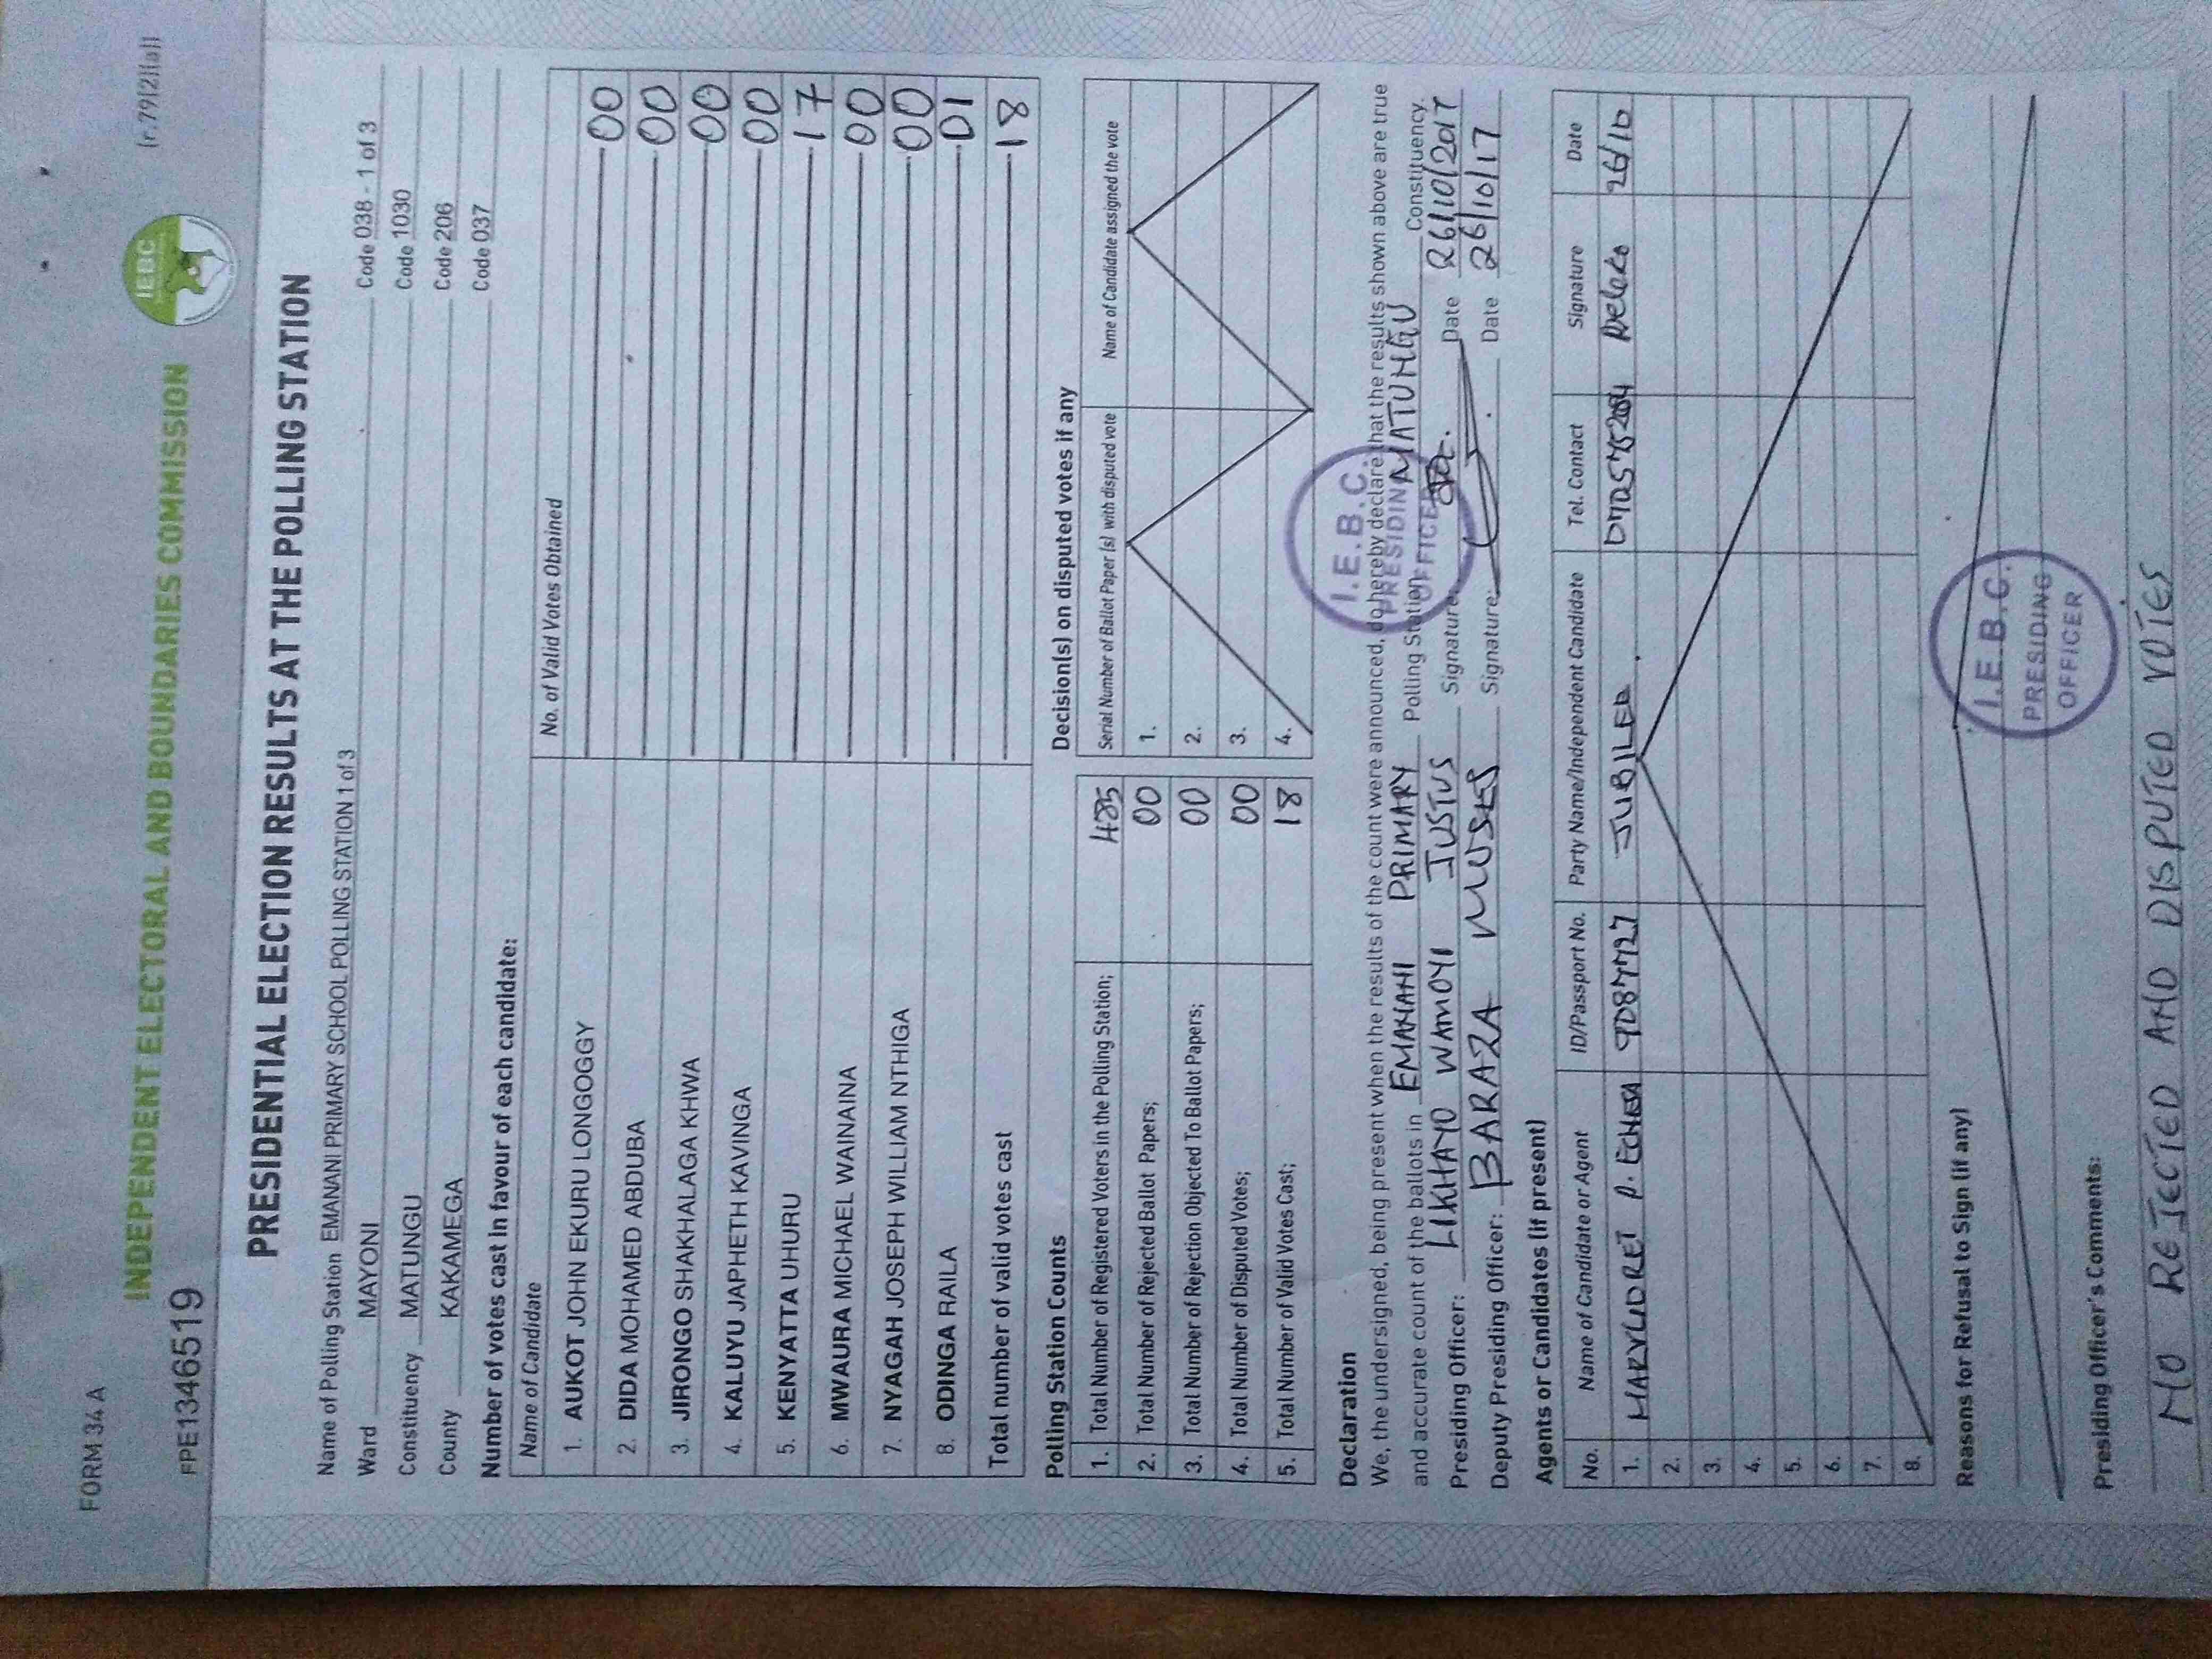 FORM 34 A
(r.79(2)(a))
INDEPENDENT ELECTORAL AND BOUNDARIES COMMISSION
IEBC
FPE1346519
PRESIDENTIAL ELECTION RESULTS AT THE POLLING STATION
Name of Polling Station EMANANI PRIMARY SCHOOL POLLING STATION 1 of 3 Code 038 - 1 of 3
Ward MAYONI Code 1030
Constituency MATUNGU Code 206
County KAKAMEGA Code 037
Number of votes cast in favour of each candidate:
Name of Candidate No. of Valid Votes Obtained
1. AUKOT JOHN EKURU LONGOGGY 00
2. DIDA MOHAMED ABDUBA 00
3. JIRONGO SHAKHALAGA KHWA 00
4. KALUYU JAPHETH KAVINGA 00
5. KENYATTA UHURU 17
6. MWAURA MICHAEL WAINAINA 00
7. NYAGAH JOSEPH WILLIAM NTHIGA 00
8. ODINGA RAILA 01
Total number of valid votes cast 18
Polling Station Counts
1. Total Number of Registered Voters in the Polling Station; 485
2. Total Number of Rejected Ballot Papers; 00
3. Total Number of Rejection Objected To Ballot Papers; 00
4. Total Number of Disputed Votes; 00
5. Total Number of Valid Votes Cast; 18
Decision(s) on disputed votes if any
Serial Number of Ballot Paper (s) with disputed vote Name of Candidate assigned the vote
1.
2.
3.
4.
Declaration
We, the undersigned, being present when the results of the count were announced, do hereby declare that the results shown above are true
and accurate count of the ballots in EMANANI PRIMARY Polling Station MATUNGU Constituency
Presiding Officer: LIKHAYO WAMOYI JUSTUS Signature: Date 26/10/2017
Deputy Presiding Officer: BARAZA MOSES Signature: Date 26/10/17
I.E.B.C.
PRESIDING
OFFICER
Agents or Candidates (if present)
No. Name of Candidate or Agent ID/Passport No. Party Name/Independent Candidate Tel. Contact Signature Date
1. P. ECHESA JUBILEE 26/10
2.
3.
4.
5.
6.
7.
8.
Reasons for Refusal to Sign (if any)
I.E.B.C.
PRESIDING
OFFICER
Presiding Officer's Comments:
NO REJECTED AND DISPUTED VOTES